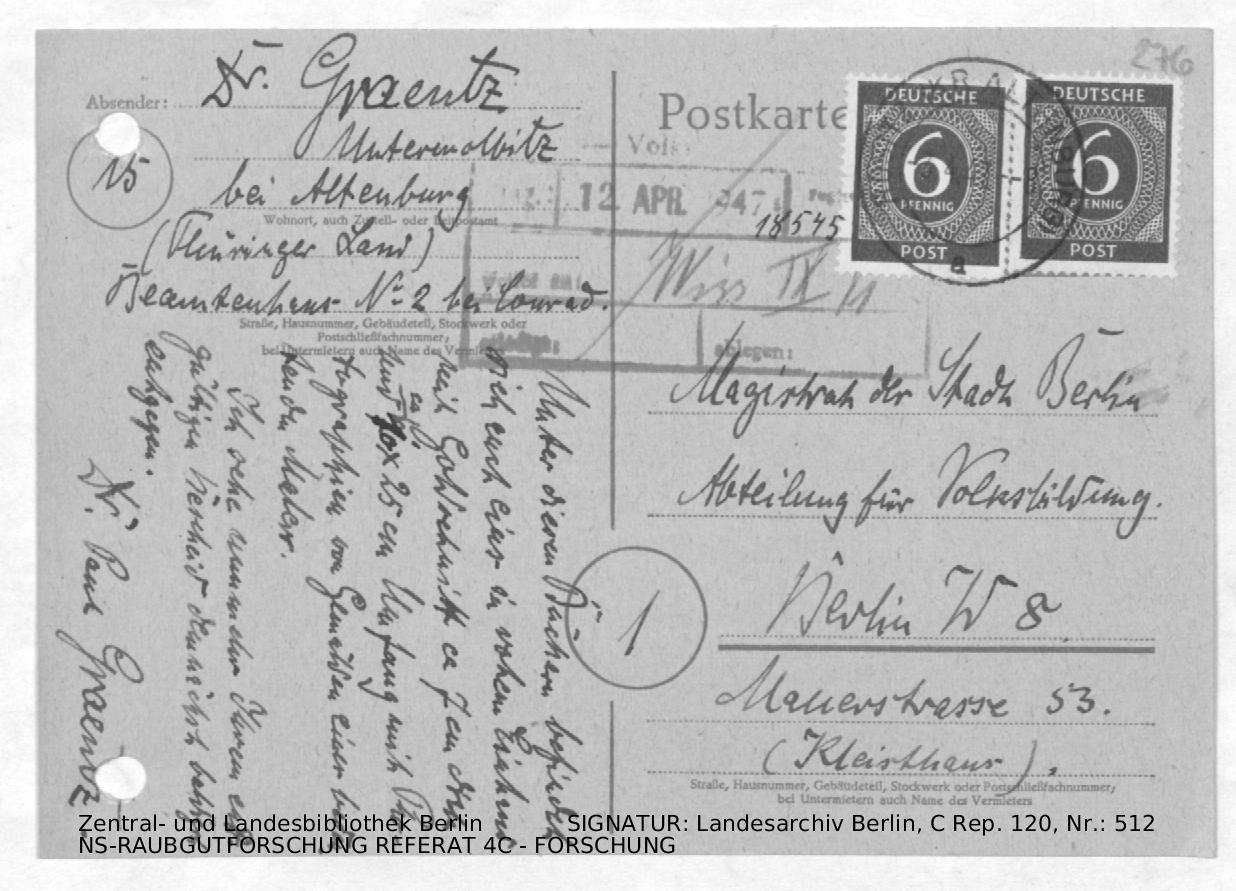 276
Absender: Dr. Graentz
Untermolbitz
15
bei Altenburg
Wohnort, auch Zustell- oder Leitpostamt
(Thüringer Land)
Beamtenhaus No 2 bei Conrad.
Straße, Hausnummer, Gebäudeteil, Stockwerk oder
Postschließfachnummer;
bei Untermietern auch Name des Vermieters
Postkarte
DEUTSCHE
6
PFENNIG
POST
DEUTSCHE
6
PFENNIG
POST
a
Volk
12 APR. 1947
18545
Wiss IV
ablegen:
Magistrat der Stadt Berlin
Abteilung für Volksbildung.
Berlin W 8.
1
Mauerstrasse 53.
(Kleisthaus).
Straße, Hausnummer, Gebäudeteil, Stockwerk oder Postschließfachnummer;
bei Untermietern auch Name des Vermieters
Unter diesen Büchern befindet
sich auch eins in rohem
mit Goldschnitt ca 7 cm dick
und ca. 25 cm Umfang mit
tographien von Gemälden
tender Maler.
Ich sehe nunmehr Ihrem
gültigen Bescheid
entgegen.
Dr. Paul Graentz
Zentral- und Landesbibliothek Berlin
SIGNATUR: Landesarchiv Berlin, C Rep. 120, Nr.: 512
NS-RAUBGUTFORSCHUNG REFERAT 4C - FORSCHUNG